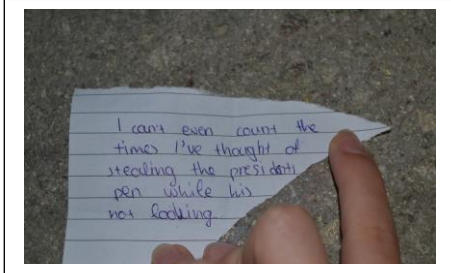 I can't even count the
times I've thought of
stealing the presidents
pen while his
not looking